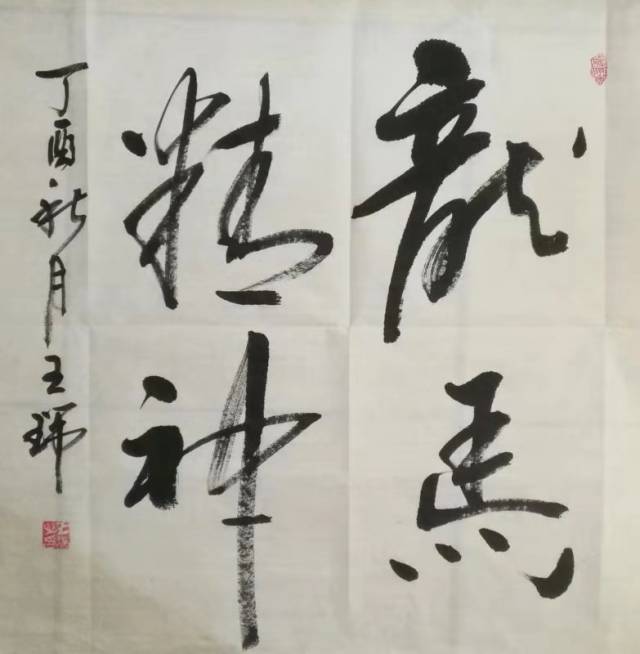 龍馬
精神
丁酉秋月王瑞